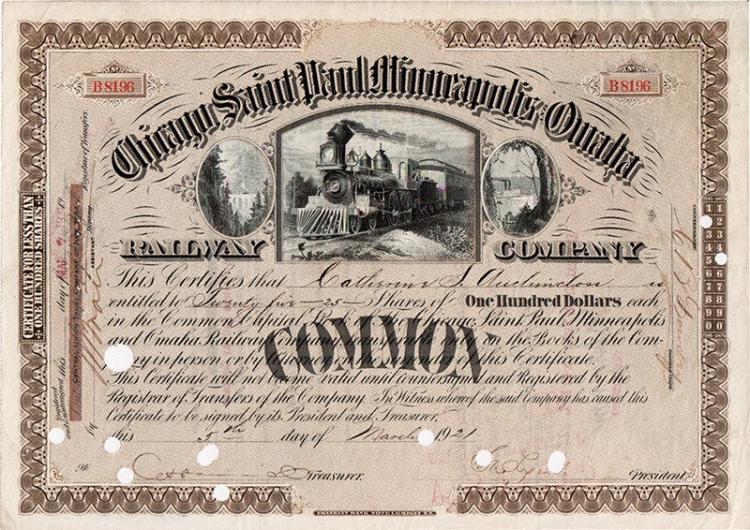 B8196
B8196
Chicago Saint Paul Minneapolis & Omaha
RAILWAY COMPANY
This Certifies that Catherine S. is
entitled to Twenty five —25— Shares of One Hundred Dollars each
in the Common Capital Chicago, Saint Paul, Minneapolis
and Omaha Railway Company on the Books of the Com-
pany in person or by of this Certificate.
COMMON
This Certificate will not become valid until countersigned and Registered by the
Registrar of Transfers of the Company. In Witness whereof the said Company has caused this
Certificate to be signed by its President and Treasurer,
this 5th day of March 1921
Treasurer. President.
CERTIFICATE FOR LESS THAN
ONE HUNDRED SHARES.
Registrar of Transfers
day of 19
by
UNITS TENS
1 1
2 2
3 3
4 4
5
6 6
7 7
8 8
9 9
0 0
FRANKLIN BANK NOTE COMPANY N.Y.